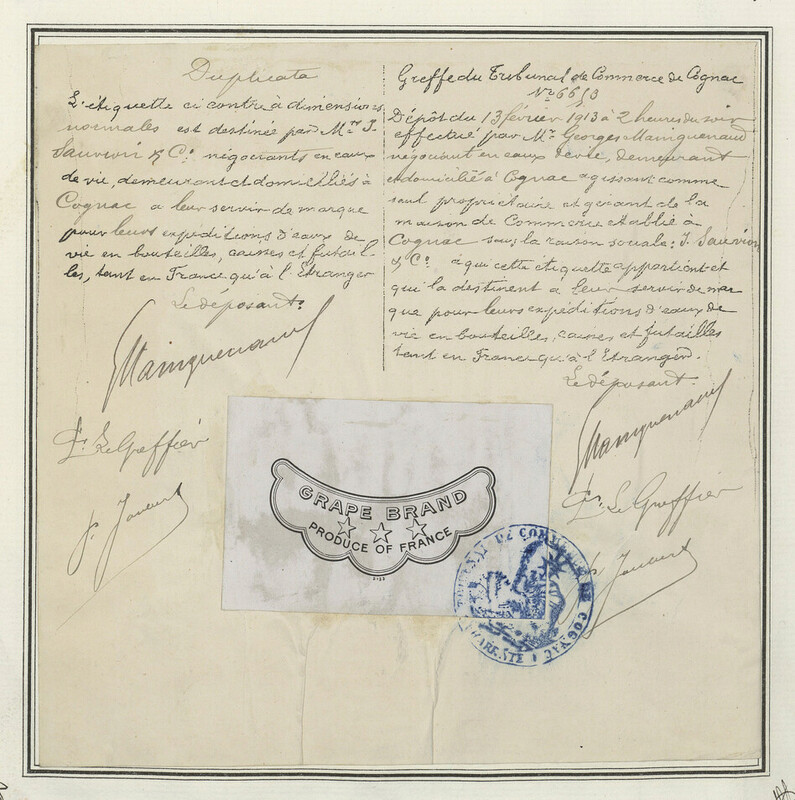 Duplicata
L'étiquette ci contre à dimensions
normales est destinée par Mrs J.
Sauvion & Co. négociants en eaux
de vie, demeurant et domiciliés à
Cognac a leur servir de marque
pour leurs expéditions d'eaux de
vie en bouteilles, caisses et futail
les, tant en France qu'à l'Étranger
Le déposant:
GMainguenaud
Pr. Le Greffier
Greffe du Tribunal de Commerce de Cognac
No 6613
Dépôt du 13 février 1913 à 2 heures du soir
effectué par Mr. Georges Mainguenaud
négociant en eaux de vie, demeurant
et domicilié à Cognac agissant comme
seul propriétaire et gérant de la
maison de Commerce établie à
Cognac sous la raison sociale: J. Sauvion
& Co. à qui cette étiquette appartient et
qui la destinent a leur servir de mar
que pour leurs expéditions d'eaux de
vie en bouteilles, caisses et futailles
tant en France qu'à l'Etranger.
Le déposant.
GMainguenaud
Pr. Le Greffier
GRAPE BRAND
PRODUCE OF FRANCE
TRIBUNAL DE COMMERCE DE COGNAC
CHARENTE